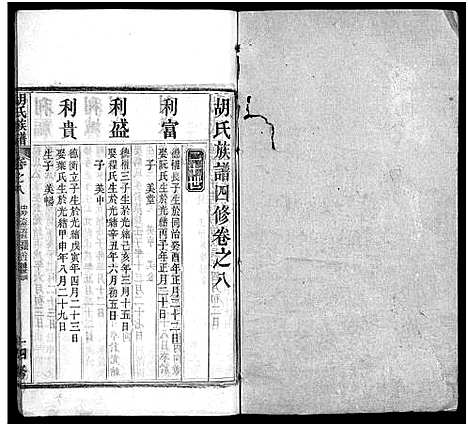 胡氏族譜四修卷之八
利富
德權長子生於同治癸酉年正月二十二日
娶阮氏生於光緒丙子年正月二十八日
子 美堂
利盛
德權三子生於光緒己亥年三月十五日
娶程氏生於光緒辛丑年六月初五日
子 美中
利貴
德衡立子生於光緒戊寅年四月二十三日
娶葉氏生於光緒甲申年八月二十九日
生子 美暢
胡氏族譜
卷之八